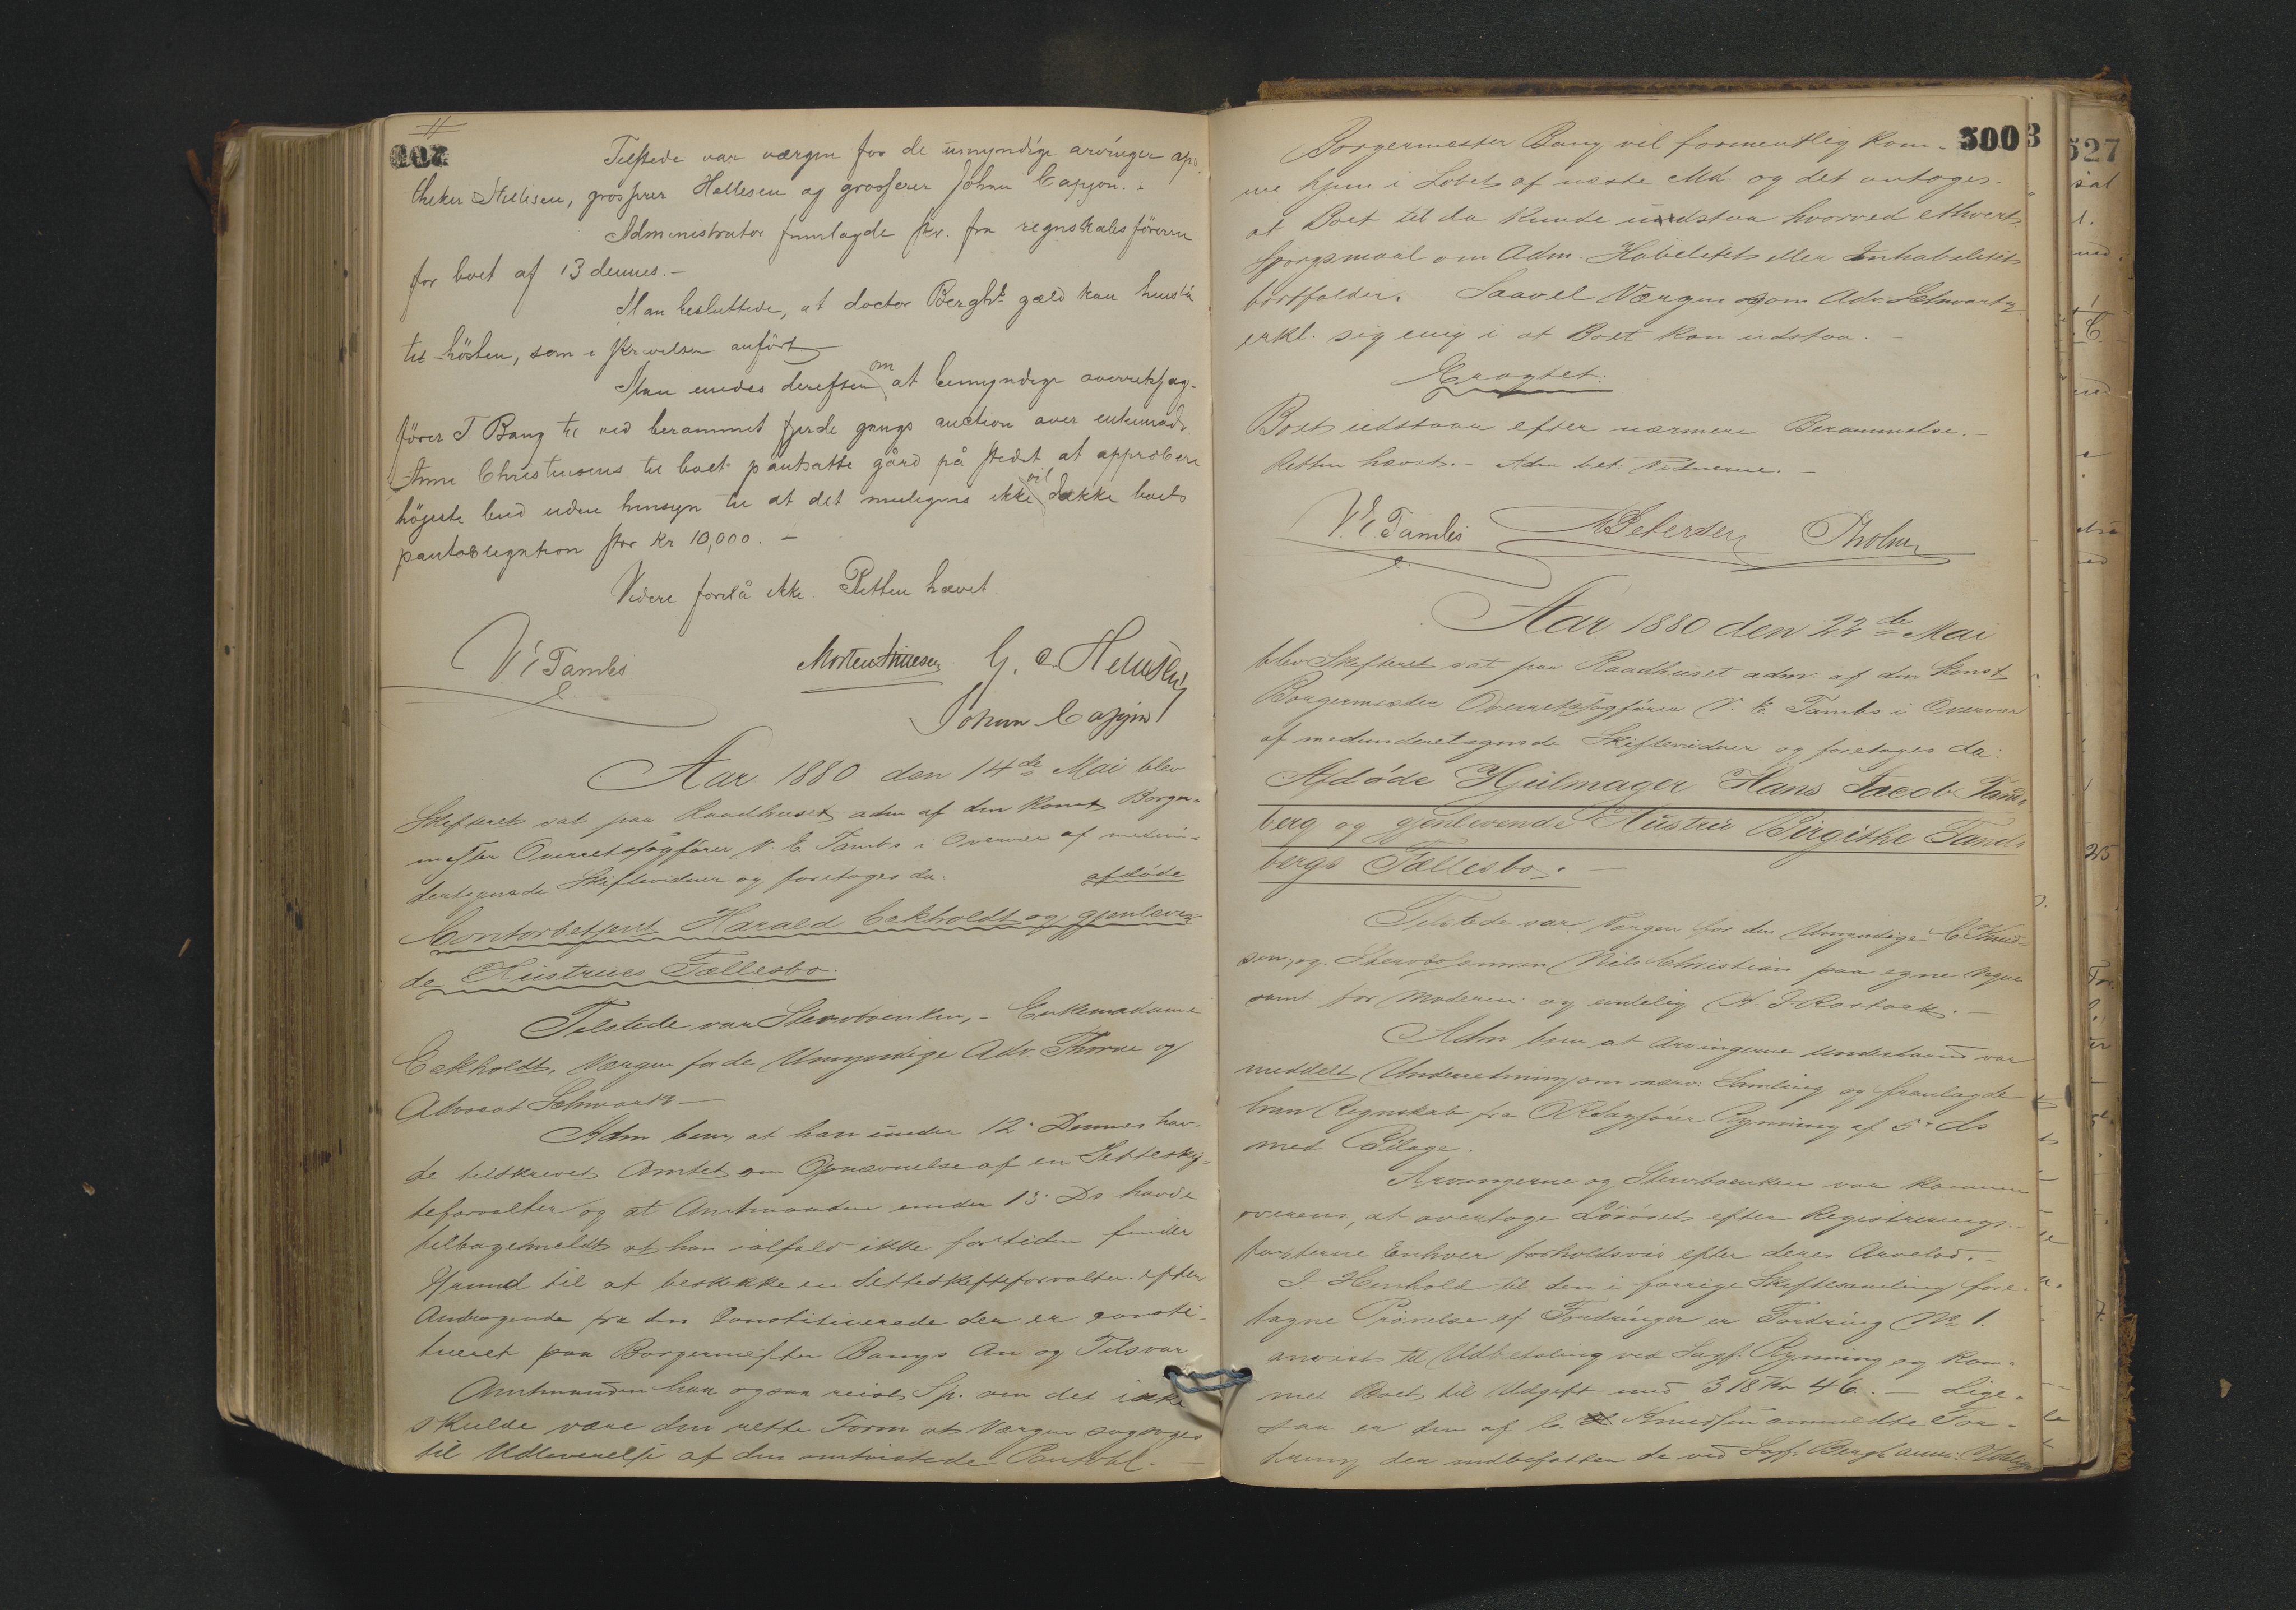 Tilstede var værgen for de umyndige arvinger apo-
theker Nielsen, grosserer Hellesen og grosserer Johan Cappon.
Administrator fremlagde skr. fra regnskabsföreren
for boet af 13 dennes.-
Man besluttede, at doctor Berghs gæld kan henstå
til hösten, som i skrivelsen anfört
Man enedes derefter om at bemyndige overretssag-
förer T. Bang til ved berammet fjerde gangs auction over enkemad.
Anne Christensens til boet pantsatte gård på stedet at approbere
högeste bud uden hensyn til at det muligens ikke vil dække boets
pantobligation stor Kr 10,000. -
Videre forelå ikke. Retten hævet.
V. E Tambs Morten Nielsen G. Hellesen
Johan Cappon
Aar 1880 den 14de Mai blev
Skifteret sat paa Raadhuset adm af den konst Borger-
mester Overretssagfører V. E Tambs i Overvær af medun-
dertegnede Skiftevidner og foretoges da:
afdøde
Contorbetjent Harald Eekholdt og gjenleven-
de Hustrues Fællesbo.
Tilstede var Stervboenken, - Enkemadame
Eekholdt, Værgen for de Umyndige Adv. Thorne og
Advocat Schwartz -
Adm bem, at han under 12' Dennes hav-
de tilskrevet Amtet om Opnævnelse af en Setteskif-
teforvalter og at Amtmanden under 13' Ds havde
tilbagemeldt at han ialfald ikke for tiden finder
Grund til at beskikke en Setteskifteforvalter efter
Andragende fra den Constituerede der er consti-
tueret paa Borgermester Bangs An og Tilsvar
Amtmanden har ogsaa reist Sp. om det ikke
skulde være den rette Form at Værgen sagsøges
til Udleverelse af den omtvistede Pantobl. -
500
3
527
Borgermester Bang vil formentlig kom-
me hjem i Løbet af næste Md. og det antages
at Boet til da kunde udstaa hvorved ethvert
Spørgsmaal om Adm. Habilitet eller Inhabilitet
bortfalder. Saavel Værgen som Adv. Schwartz
erkl. sig enig i at Boet kan udstaa. -
Eragtet:
Boet udstaar efter nærmere Berammelse. -
Retten hævet. - Adm bet. Vidnerne. -
V. E Tambs Petersen Holm
Aar 1880 den 22de Mai
blev Skifteret sat paa Raadhuset adm. af den konst
Borgermester Overretssagfører V. E. Tambs i Overvær
af medundertegnede Skiftevidner og foretoges da:
Afdøde Hjulmager Hans Jacob Tand-
berg og gjenlevende Hustru Birgithe Tand-
bergs Fællesbo. -
Tilstede var Værgen for den Umyndige C Knud-
sen, og Stervbosønnen Nils Christian paa egne Vegne
samt for Moderen og endelig A. J. Rostock. -
Adm. bem at Arvingerne underhaand var
meddelt Underretning om nærv. Samling og fremlagde
han Regnskab fra ORsagfører Rynning af 5' ds
med Bilage.
Arvingerne og Stervboenken var kommen
overens, at overtage Løsøret efter Registrerings-
taxterne Enhver forholdsvis efter deres Arvelod. -
I Henhold til den i forrige Skiftesamling fore-
tagne Prøvelse af Fordringer er Fordring No 1.
anvist til Udbetaling ved Sagf. Rynning og kom-
mer Boet til Udgift med 318 Kr 46. - Lige-
saa er den af C. Knudsen anmeldte For-
dring der indbefatter de ved Sagf. Bergh anm. Udlæg